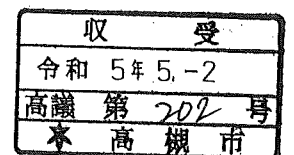 収受
令和 5年 5.-2
高議 第 202 号
★ 高槻市